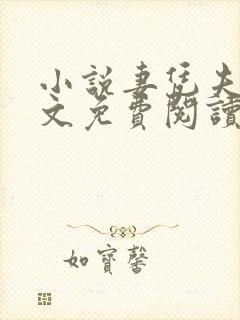 小說妻凭夫
文免費閱讀
如寶馨